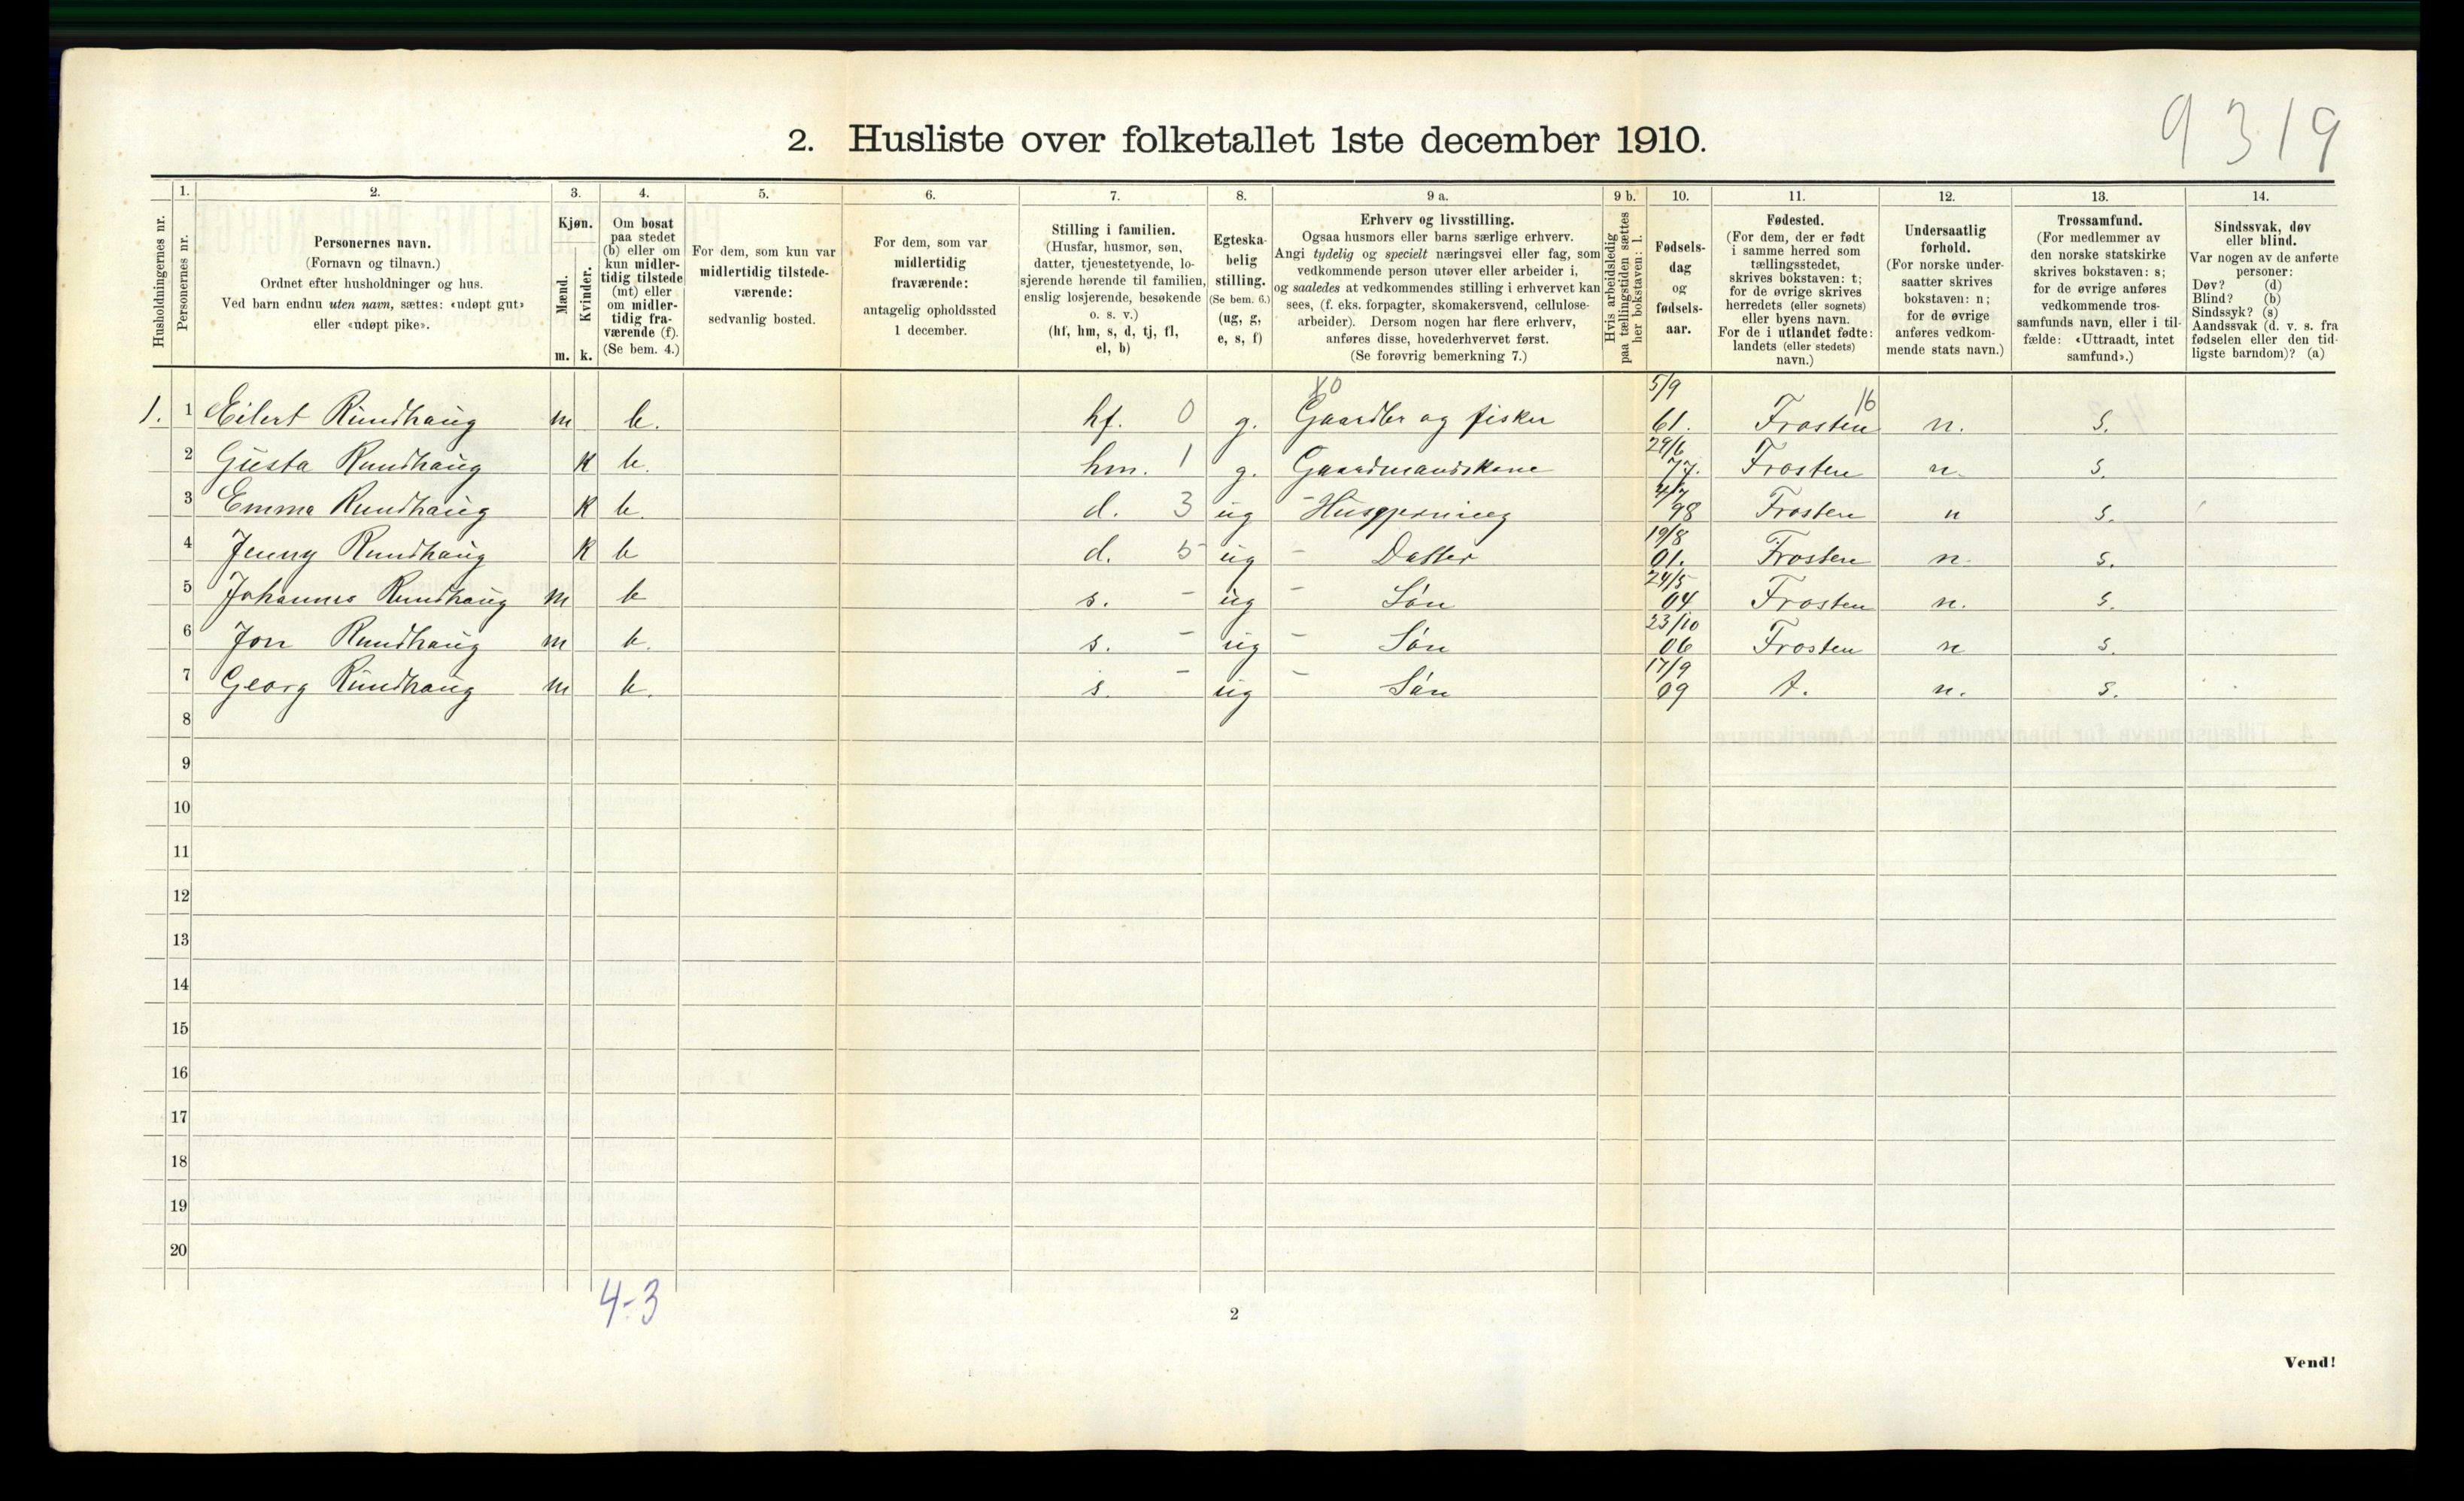 9319
2. Husliste over folketallet 1ste december 1910.
1. 2. 3. 4. 5. 6. 7. 8. 9 a. 9 b. 10. 11. 12. 13. 14.
Husholdningernes nr.
Personernes nr.
Personernes navn.
(Fornavn og tilnavn.)
Ordnet efter husholdninger og hus.
Ved barn endnu uten navn, sættes: «udøpt gut»
eller «udøpt pike».
Kjøn.
Mænd.
Kvinder.
m. k.
Om bosat
paa stedet
(b) eller om
kun midler-
tidig tilstede
(mt) eller
om midler-
tidig fra-
værende (f).
(Se bem. 4.)
For dem, som kun var
midlertidig tilstede-
værende:
sedvanlig bosted.
For dem, som var
midlertidig
fraværende:
antagelig opholdssted
1 december.
Stilling i familien.
(Husfar, husmor, søn,
datter, tjenestetyende, lo-
sjerende hørende til familien,
enslig losjerende, besøkende
o. s. v.)
(hf, hm, s, d, tj, fl,
el, b)
Egteska-
belig
stilling.
(Se bem. 6.)
(ug, g,
e, s, f)
Erhverv og livsstilling.
Ogsaa husmors eller barns særlige erhverv.
Angi tydelig og specielt næringsvei eller fag, som
vedkommende person utøver eller arbeider i,
og saaledes at vedkommendes stilling i erhvervet kan
sees, (f. eks. forpagter, skomakersvend, cellulose-
arbeider). Dersom nogen har flere erhverv,
anføres disse, hovederhvervet først.
(Se forøvrig bemerkning 7.)
Hvis arbeidsledig
paa tællingstiden sættes
her bokstaven: l.
Fødsels-
dag
og
fødsels-
aar.
Fødested.
(For dem, der er født
i samme herred som
tællingsstedet,
skrives bokstaven: t;
for de øvrige skrives
herredets (eller sognets)
eller byens navn.
For de i utlandet fødte:
landets (eller stedets)
navn.)
Undersaatlig
forhold.
(For norske under-
saatter skrives
bokstaven: n;
for de øvrige
anføres vedkom-
mende stats navn.)
Trossamfund.
(For medlemmer av
den norske statskirke
skrives bokstaven: s;
for de øvrige anføres
vedkommende tros-
samfunds navn, eller i til-
fælde: «Uttraadt, intet
samfund».)
Sindssvak, døv
eller blind.
Var nogen av de anførte
personer:
Døv? (d)
Blind? (b)
Sindssyk? (s)
Aandssvak (d. v. s. fra
fødselen eller den tid-
ligste barndom)? (a)
1. 1 Eilert Rundhaug m b. hf. 0 g. X0 Gaardbr og fisker 5/9 61. Frosten 16 n. s.
2 Gusta Rundhaug K b. hm. 1 g. Gaardmandskone 29/6 77. Frosten n. s.
3 Emma Rundhaug K b. d. 3 ug - Husgjerning 4/7 98 Frosten n s.
4 Jenny Rundhaug K b d. 5 ug - Datter 19/8 01. Frosten n. s.
5 Johannes Rundhaug m b s. - ug - Søn 24/5 04 Frosten n. s.
6 Jon Rundhaug m b. s. - ug - Søn 23/10 06 Frosten n s.
7 Georg Rundhaug m b. s. - ug - Søn 17/9 09 t. n. s.
8
9
10
11
12
13
14
15
16
17
18
19
20
4-3
2
Vend!